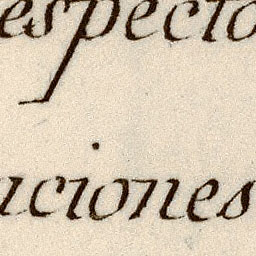 especto
uciones